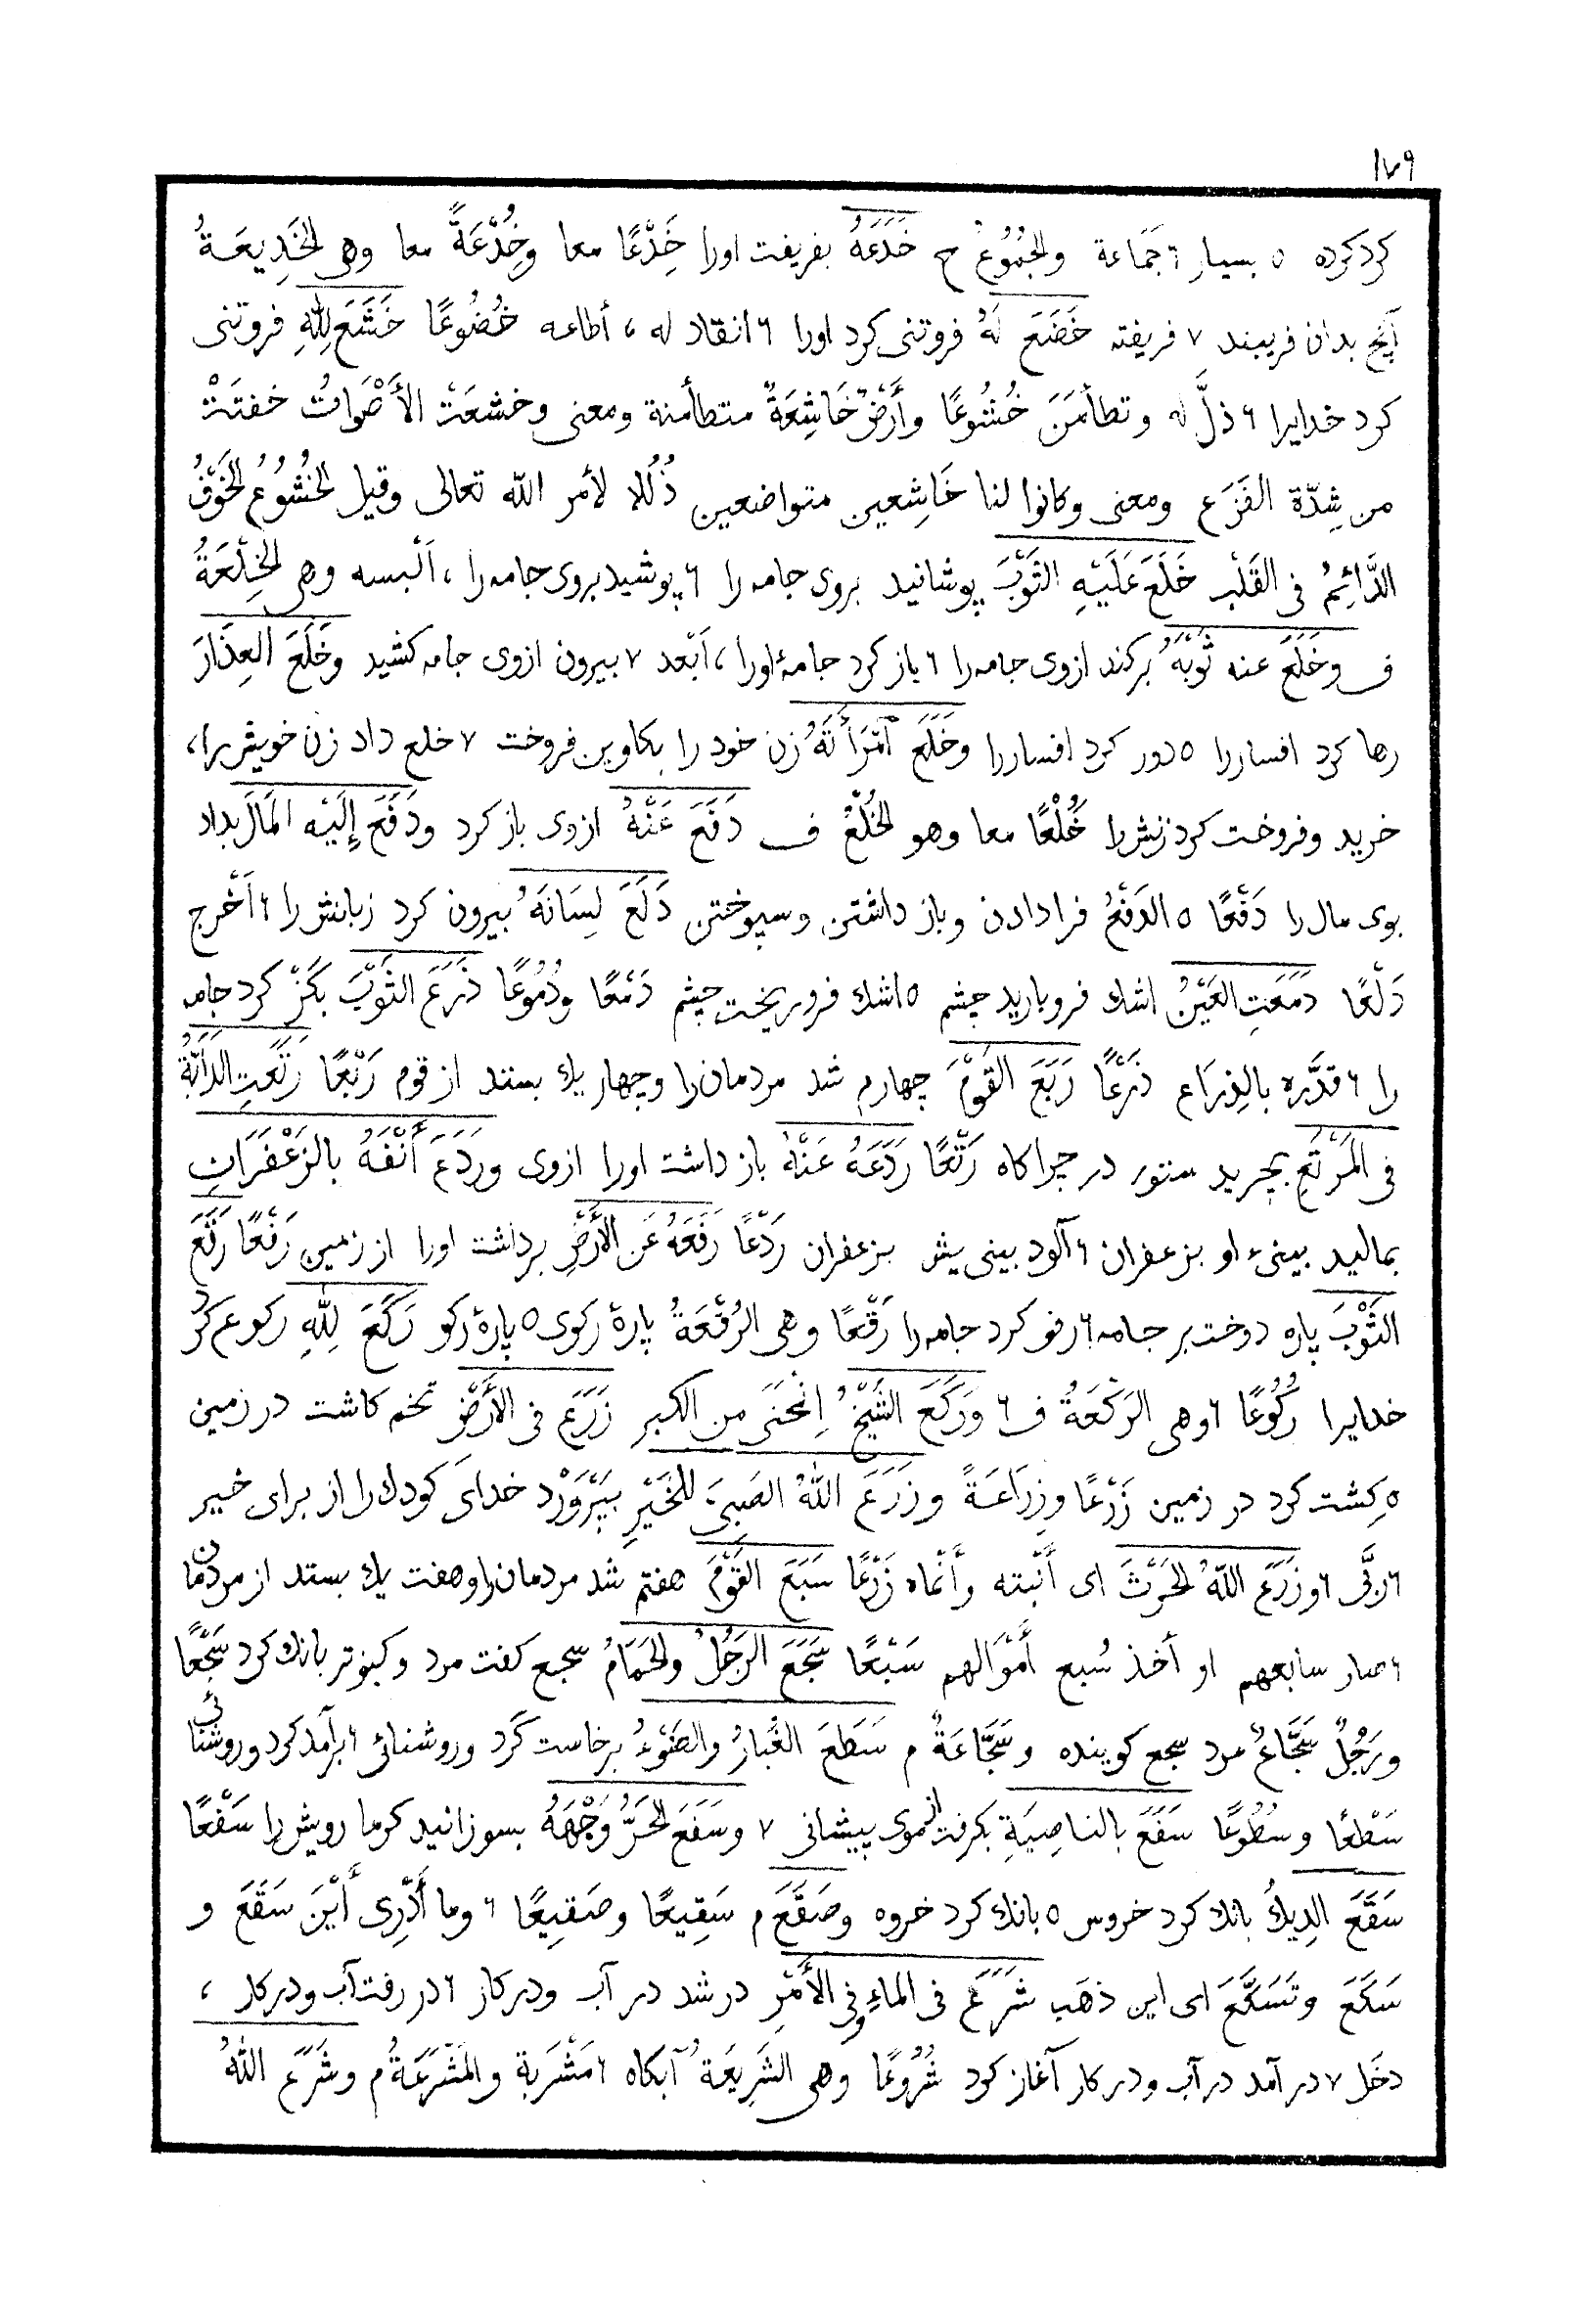 ۱۷۹
کردکرده ٥ بسیار ٦ جَمَاعة والجُمُوُعُ ج خَدَعَهُ بفریفت اورا خَِدْعًا معا وخُِدْعَةً معا وهی الخَدِیعَةُ
آنچ بدان فریبند ٧ فریفته خَضَعَ لَهُ فروتنی کرد اورا ٦ انقاد له ، أطاعه خُضُوعًا خَشَعَ لِلّٰهِ فروتنی
کرد خدایرا ٦ ذلَّ له وتطأمَنَ خُشُوعًا وأَرْضٌ خَاشِعَةٌ متطأمنة ومعنی وخشعَتْ الأَصْوَاتُ خفتَتْ
من شِدّة الفَزَع ومعنی وکانوا لنا خَاشِعین متواضعین ذُلُلا لأمر الله تعالی وقیل الخُشُوُعُ الخَوْفُ
الدَّائِمُ فی القَلْب خَلَعَ عَلَیْهِ الثَوْبَ پوشانید بروی جامه را ٦ پوشید بروی جامه را ، اَلْبسه وهی الخِلْعَةُ
ف وخَلَعَ عنه ثَوْبَهُ برکند ازوی جامه را ٦ باز کرد جامهٔ اورا ، اَبْعد ٧ بیرون ازوی جامه کشید وخَلَعَ العِذَارَ
رها کرد افسار را ٥ دور کرد افسار را وخَلَعَ امْرَأَتَهُ زن خود را بکاوین فروخت ٧ خلع داد زن خویش را ،
خرید وفروخت کرد زنش را خَُلْعًا معا وهو الخُلْعُ ف دَفَعَ عَنْهُ ازوی باز کرد ودَفَعَ إِلَیْهِ المَالَ بداد
بوی مال را دَفْعًا ٥ الدَفْعُ فرا دادن وباز داشتن وسپوختن دَلَعَ لِسَانَهُ بیرون کرد زبانش را ٦ اَخْرج
دَلْعًا دَمَعَتِ العَیْنُ اشك فرو بارید چشم ٥ اشك فرو ریخت چشم دَمْعًا ودُمُوعًا ذَرَعَ الثَوْبَ بکَزْ کرد جامه
را ٦ قدَّره بالذِرَاع ذَرْعًا رَبَعَ القَوْمَ چهارم شد مردمان را وچهار یك بستد از قوم رَبْعًا رَتَعَتِ الدَابَّةُ
فی المَرْتَعِ بچرید ستور در چراکاه رَتْعًا رَدَعَهُ عَنْهُ باز داشت اورا ازوی ورَدَعَ أَنْفَهُ بالزَعْفَرَانِ
بمالید بینیء او بزعفران ٦ آلود بینی یش بزعفران رَدْعًا رَفَعَهُ عَن الأَرْضِ برداشت اورا از زمین رَفْعًا رَقَعَ
الثَوْبَ پاره دوخت بر جامه ٦ رفو کرد جامه را رَقْعًا وهی الرُقْعَةُ پارهٔ رکوی ٥ پارهٔ رکو رَکَعَ لِلّٰهِ رکوع کرد
خدایرا رُکُوُعًا ٦ وهی الرَکْعَةُ ف ٦ وَرَکَعَ الشَیْخُ اِنْحَنَی من الکبر زَرَعَ فی الأَرْضِ تخم کاشت در زمین
٥ کِشت کرد در زمین زَرْعًا وزِرَاعَةً وزَرَعَ اللهُ الصَبِیَّ للخَیْرِ بپَرْوَرْد خدایَ کودك را از برای خیر
٦ ربَّی ٦ وزَرَعَ اللهُ الحَرْثَ ای أَنْبته وأَنْماه زَرْعًا سَبَعَ القَوْمَ هفتم شد مردمان را وهفت یك بستد از مردمان
٦ صار سابعهم او أخذ سُبع أَمْوَالهم سَبْعًا سَجَعَ الرَجُلُ والحَمَامُ سجع کفت مرد وکبوتر بانك کرد سَجْعًا
ورَجُلٌ سَجَّاعٌ مرد سجع کوینده وسَجَّاعَةٌ م سَطَعَ الغُبَارُ والضَوْءُ برخاست کَرد وروشنائی ٦ برآمد کرد وروشنائی
سَطْعًا وسُطُوعًا سَفَعَ بالناصِیَةِ بکرفت از موی پیشانی ٧ وسَفَعَ الحَرُّ وَجْهَهُ بسوزانید کرما رویش را سَفْعًا
سَقَعَ الدِیكُ بانك کرد خروس ٥ بانك کرد خروه وصَقَعَ م سَقِیعًا وصَقِیعًا ٦ وما أَدْرِی أَیْنَ سَقَعَ و
سَکَعَ وتَسَکَّعَ ای این ذهَب شَرَعَ فی الماءِ وفی الأَمْرِ در شد در آب ودر کار ٦ در رفت آب ودر کار ،
دخَل ٧ در آمد در آب ودر کار آغاز کود شُرُوُعًا وهی الشَرِیعَةُ آبکاه ٦ مَشْرَبة والمَشْرَعَةُ م وشَرَعَ اللهُ